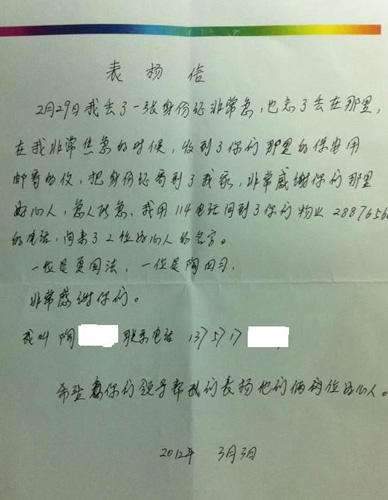 表扬信
2月29日我丢了一张身份证非常急,也忘了丢在那里,
在我非常焦急的时候,收到了你们那里的保安用
邮寄的仪,把身份证寄到了我家,非常感谢你们那里
好心人,急人所急,我用114电话问到了你们物业2887656
的电话,问来了2位好心人的名字。
一位是夏国法,一位是陶田习.
非常感谢你们。
我叫陶 联系电话 137517
希望 你们领导帮我们表扬他们俩两位好心人。
2012年 3月3日